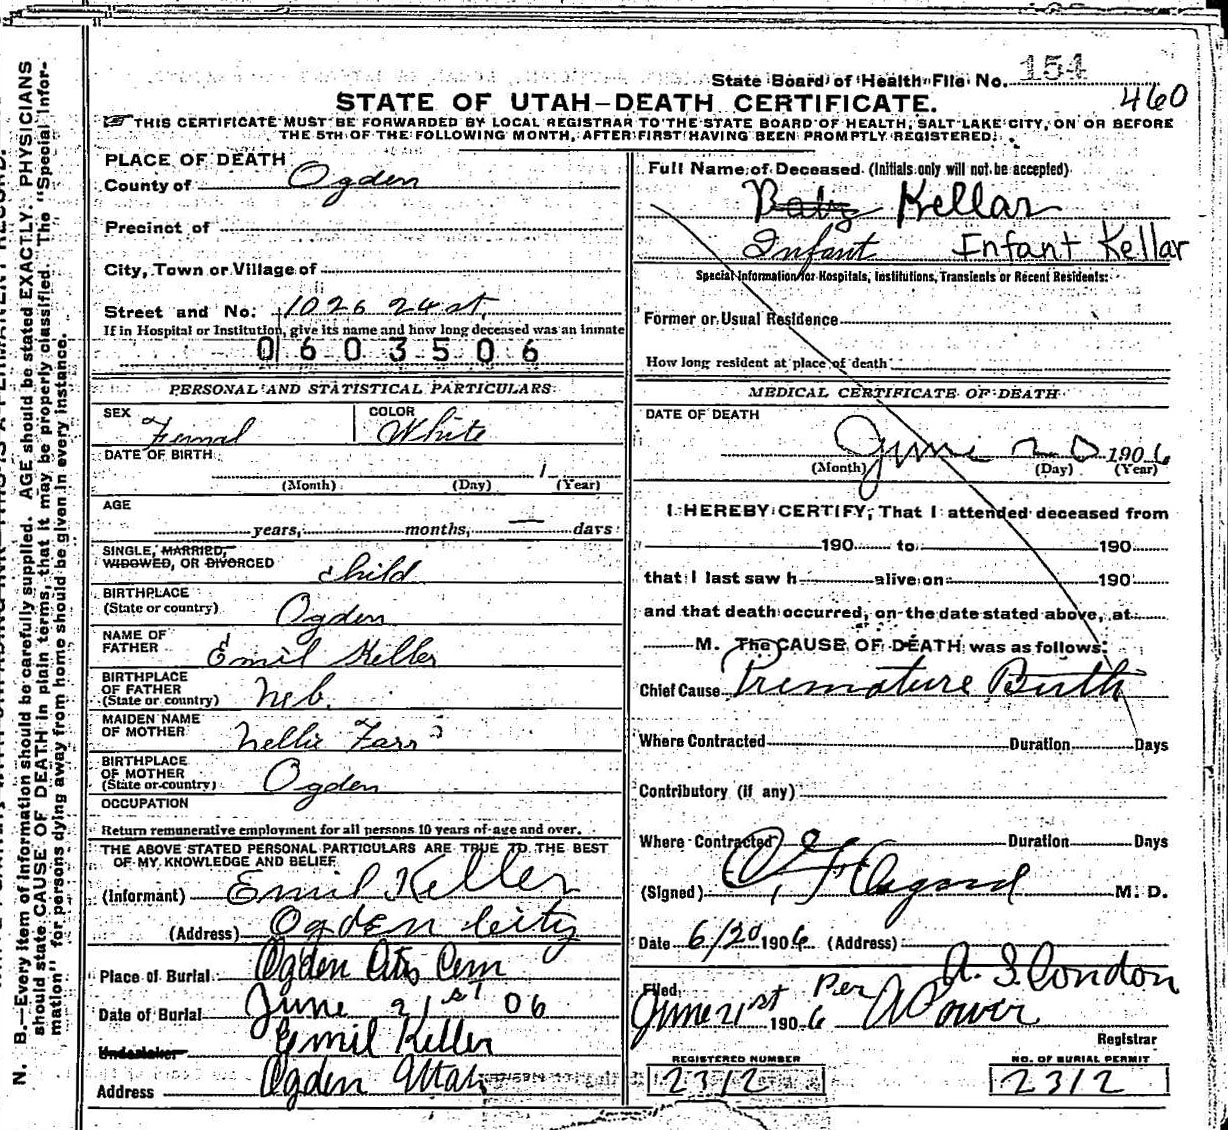 State Board of Health File No. 154
460
STATE OF UTAH—DEATH CERTIFICATE.
THIS CERTIFICATE MUST BE FORWARDED BY LOCAL REGISTRAR TO THE STATE BOARD OF HEALTH, SALT LAKE CITY, ON OR BEFORE
THE 5TH OF THE FOLLOWING MONTH, AFTER FIRST HAVING BEEN PROMPTLY REGISTERED.
PLACE OF DEATH
County of Ogden
Precinct of
City, Town or Village of
Street and No. 1026 24 st.
If in Hospital or Institution, give its name and how long deceased was an inmate
0603506
PERSONAL AND STATISTICAL PARTICULARS
SEX Femal COLOR White
DATE OF BIRTH
(Month) (Day) 1 (Year)
AGE
years, months, — days
SINGLE, MARRIED,
WIDOWED, OR DIVORCED child
BIRTHPLACE
(State or country) Ogden
NAME OF
FATHER Emil Keller
BIRTHPLACE
OF FATHER
(State or country) Neb.
MAIDEN NAME
OF MOTHER Nellie Farr
BIRTHPLACE
OF MOTHER
(State or country) Ogden
OCCUPATION
Return remunerative employment for all persons 10 years of age and over.
THE ABOVE STATED PERSONAL PARTICULARS ARE TRUE TO THE BEST
OF MY KNOWLEDGE AND BELIEF
(Informant) Emil Keller
(Address) Ogden City
Place of Burial Ogden City Cem
Date of Burial June 21st 06
Undertaker Emil Keller
Address Ogden Utah
Full Name of Deceased (Initials only will not be accepted)
Baby Kellar
Infant Infant Kellar
Special Information for Hospitals, Institutions, Transients or Recent Residents:
Former or Usual Residence
How long resident at place of death
MEDICAL CERTIFICATE OF DEATH
DATE OF DEATH
June 20 1906
(Month) (Day) (Year)
I HEREBY CERTIFY, That I attended deceased from
190 to 190
that I last saw h alive on 190
and that death occurred, on the date stated above, at
M. The CAUSE OF DEATH was as follows:
Chief Cause Premature Birth
Where Contracted Duration Days
Contributory (if any)
Where Contracted Duration Days
(Signed) M. D.
Date 6/20 1906 (Address)
A. S. Condon
Filed
June 21st 1906 Per A Power
Registrar
REGISTERED NUMBER
2312
NO. OF BURIAL PERMIT
2312
N. B.—Every item of information should be carefully supplied. AGE should be stated EXACTLY. PHYSICIANS
should state CAUSE OF DEATH in plain terms, that it may be properly classified. The "Special Infor-
mation" for persons dying away from home should be given in every instance.